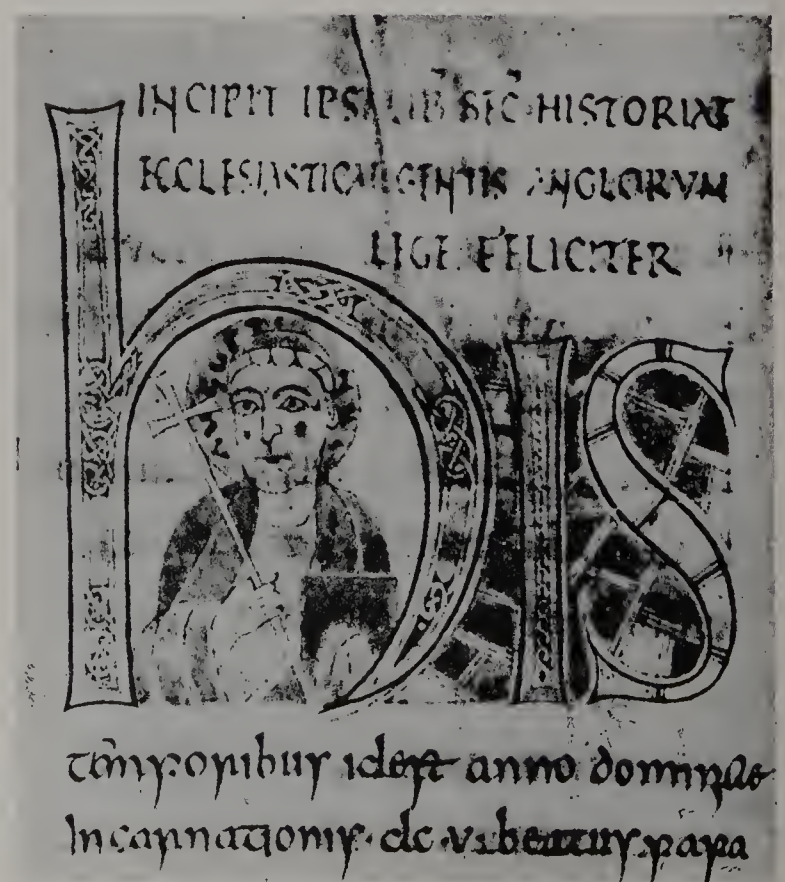 INCIPIT IPSA LIB SEC HISTORIAE
ECCLESIASTICAE GENTIS ANGLORVM
LEGE FELICITER
hIS
temporibus idest anno dominicae
Incarnationis dc v beatus papa